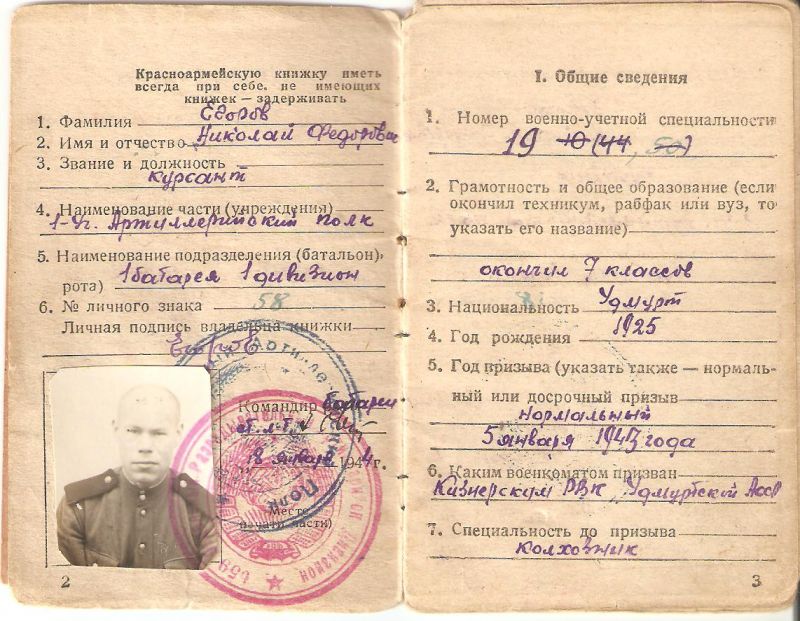 Красноармейскую книжку иметь
всегда при себе. не имеющих
книжек — задерживать
1. Фамилия Егоров
2. Имя и отчество Николай Федорович
3. Звание и должность
курсант
4. Наименование части (учреждения)
Артиллерийский полк
5. Наименование подразделения (батальон,
рота) 1 батарея 1 дивизион
6. № личного знака 58
Личная подпись владельца книжки
Егоров
Командир батареи
ст. л-т
18 января 1944 г.
Место
печати части)
2
I. Общие сведения
1. Номер военно-учетной специальности
19 10 (44, 50)
2. Грамотность и общее образование (если
окончил техникум, рабфак или вуз, то
указать его название)
окончил 7 классов
3. Национальность Удмурт
4. Год рождения 1925
5. Год призыва (указать также — нормаль-
ный или досрочный призыв
нормальный
5 января 1943 года
6. Каким военкоматом призван
Кизнерским РВК, Удмуртской АССР
7. Специальность до призыва
колхозник
3